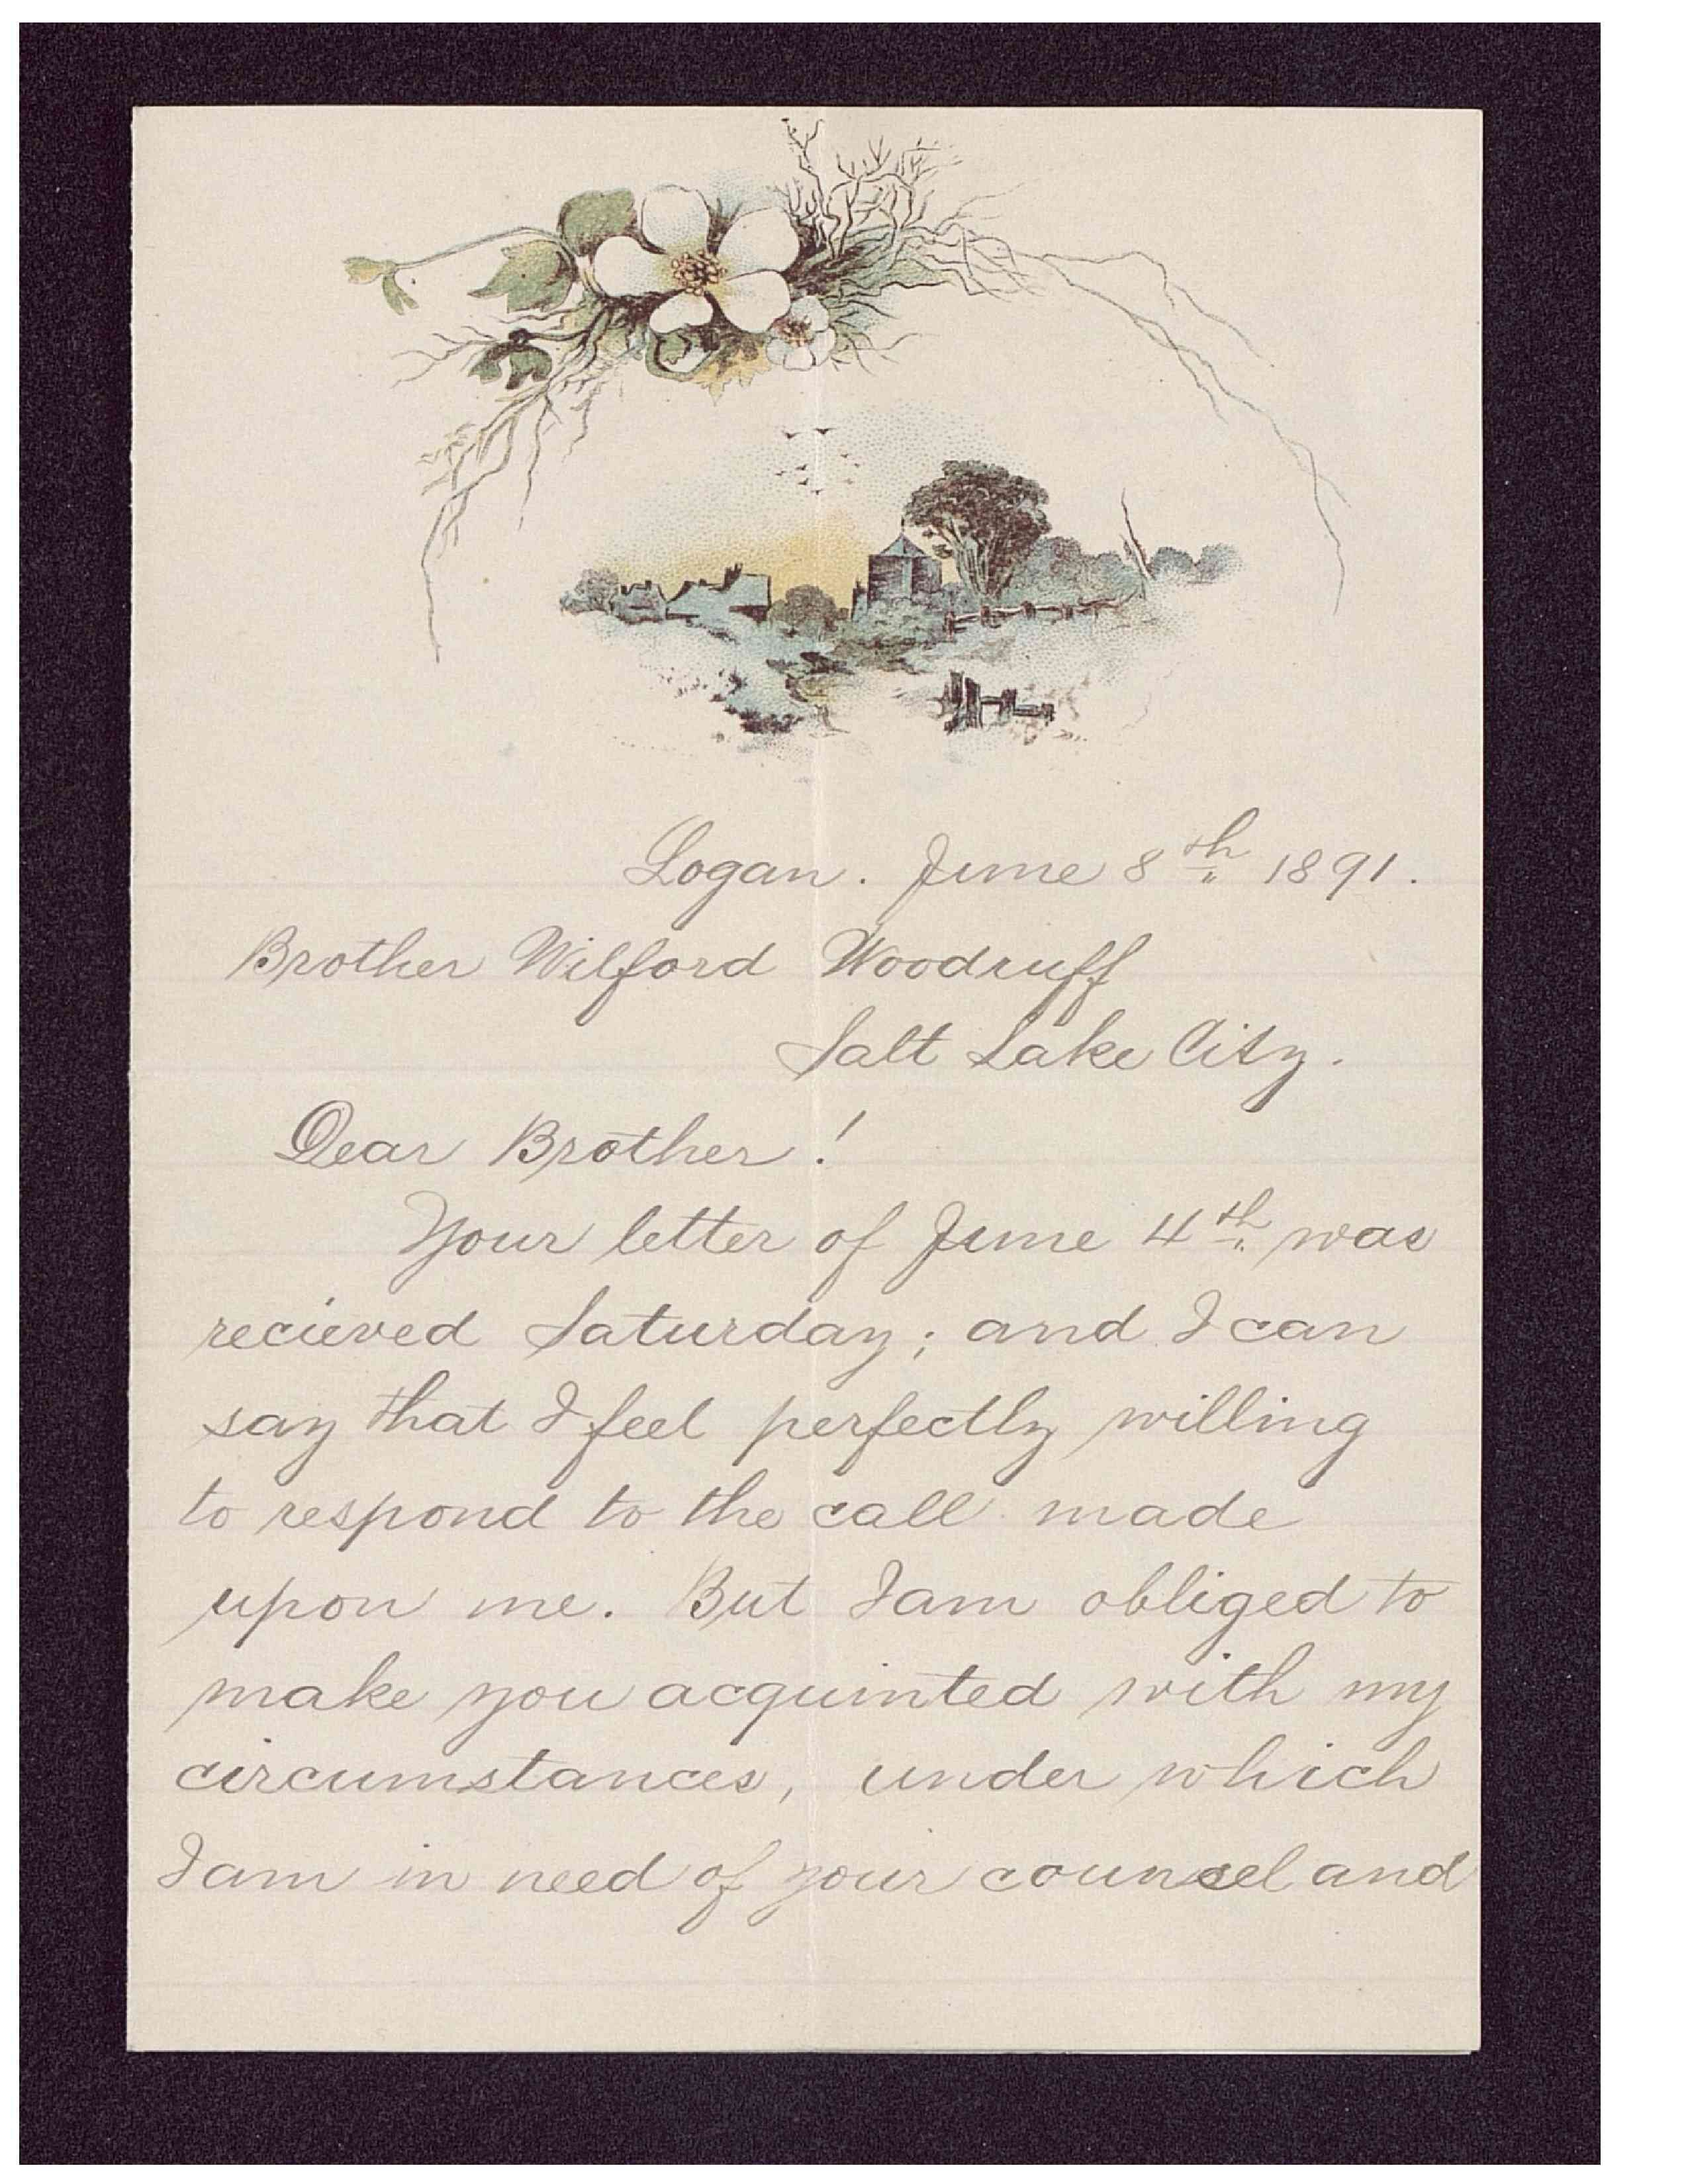 Logan. June 8th 1891.
Brother Wilford Woodruff
Salt Lake City.
Dear Brother!
Your letter of June 4th was
recieved Saturday; and I can
say that I feel perfectly willing
to respond to the call made
upon me. But I am obliged to
make you acquinted with my
circumstances, under which
I am in need of your counsel and